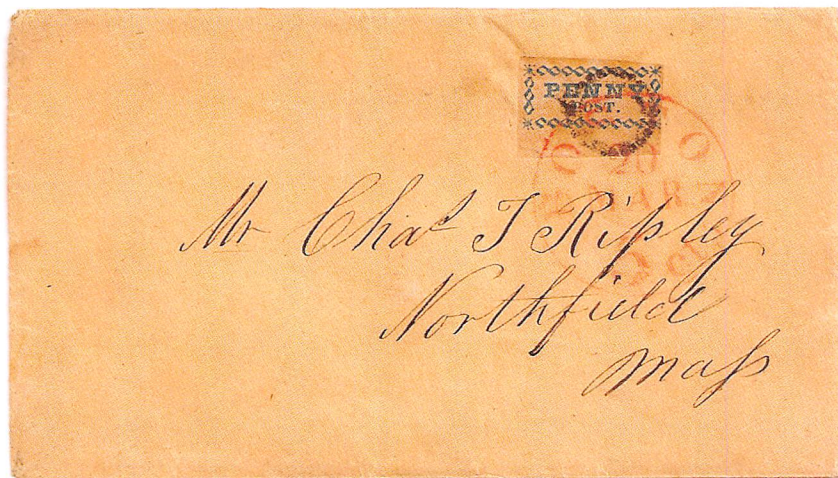 PENNY
POST.
20
MAR
Mr Chas T Ripley
Northfield
Mass